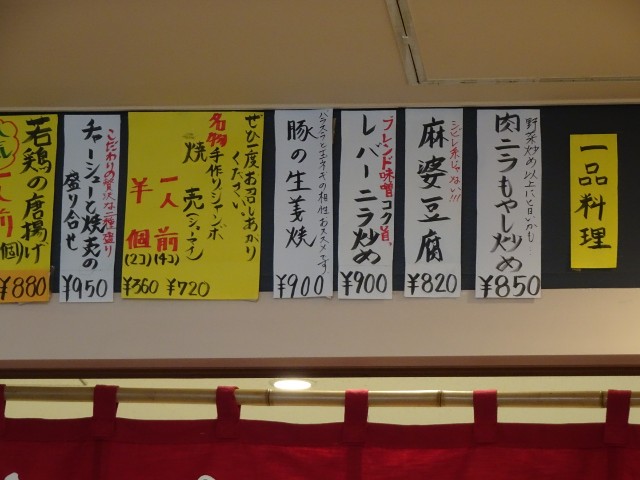 一品料理
野菜炒め以上に旨いかも…
肉ニラもやし炒め
¥850
シビレ系じゃない!!!
麻婆豆腐
¥820
ブレンド味噌コク旨
レバーニラ炒め
¥900
バラスライスと玉ネギの相性おススメです
豚の生姜焼
¥900
ぜひ一度お召しあがり
ください
名物手作りジャンボ
焼売(シューマイ)
一人前(4コ)
¥720
半個(2コ)
¥360
こだわりの贅沢な二種盛り
チャーシューと焼売の
盛り合せ
¥950
若鶏の唐揚げ
一人前
個)
¥880